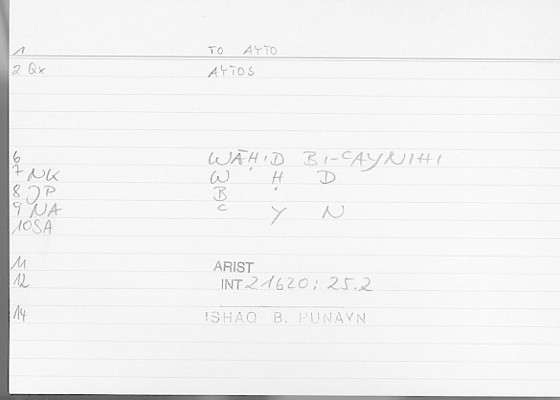 1 TO AYTO
2 Qx AYTOS
6 WĀḤID BI-ʿAYNIHI
7 NK W Ḥ D
8 JP B
9 NA ʿ Y N
10 SA
11 ARIST
12 INT 21620 : 25.2
14 ISHAQ B. HUNAYN